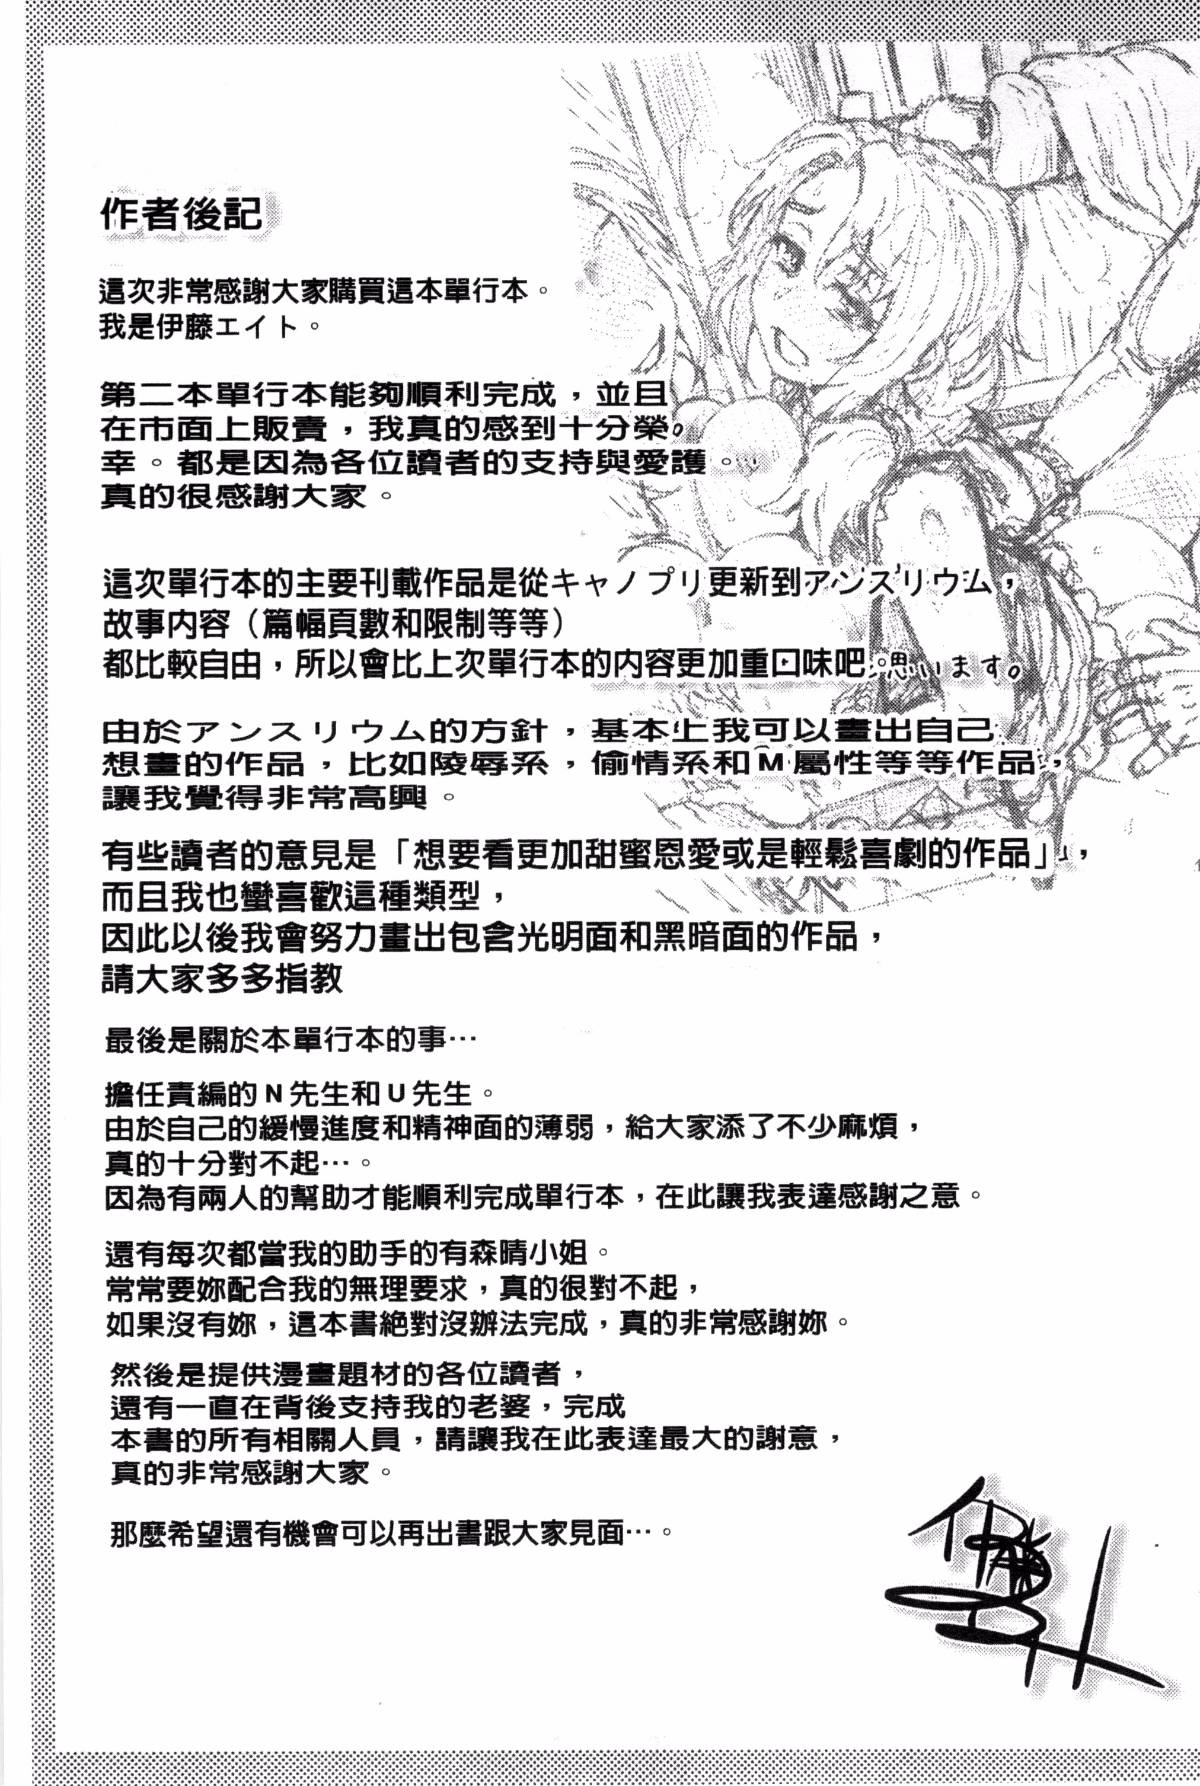 作者後記
這次非常感謝大家購買這本單行本。
我是伊藤エイト。
第二本單行本能夠順利完成，並且
在市面上販賣，我真的感到十分榮
幸。都是因為各位讀者的支持與愛護。
真的很感謝大家。
這次單行本的主要刊載作品是從キャノプリ更新到アンスリウム，
故事內容（篇幅頁數和限制等等）
都比較自由，所以會比上次單行本的內容更加重口味吧。思います。
由於アンスリウム的方針，基本上我可以畫出自己
想畫的作品，比如陵辱系，偷情系和M屬性等等作品，
讓我覺得非常高興。
有些讀者的意見是「想要看更加甜蜜恩愛或是輕鬆喜劇的作品」，
而且我也蠻喜歡這種類型，
因此以後我會努力畫出包含光明面和黑暗面的作品，
請大家多多指教
最後是關於本單行本的事…
擔任責編的N先生和U先生。
由於自己的緩慢進度和精神面的薄弱，給大家添了不少麻煩，
真的十分對不起…。
因為有兩人的幫助才能順利完成單行本，在此讓我表達感謝之意。
還有每次都當我的助手的有森晴小姐。
常常要妳配合我的無理要求，真的很對不起，
如果沒有妳，這本書絕對沒辦法完成，真的非常感謝妳。
然後是提供漫畫題材的各位讀者，
還有一直在背後支持我的老婆，完成
本書的所有相關人員，請讓我在此表達最大的謝意，
真的非常感謝大家。
那麼希望還有機會可以再出書跟大家見面…。